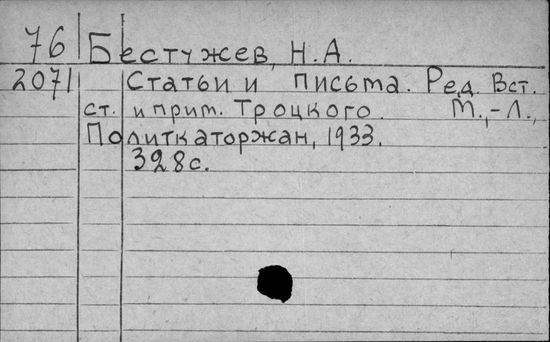 76 Бестужев, Н.А.
2071 Статьи и письма. Ред. Вст.
ст. и прим. Троцкого. М.,-Л.,
Политкаторжан, 1933.
328с.